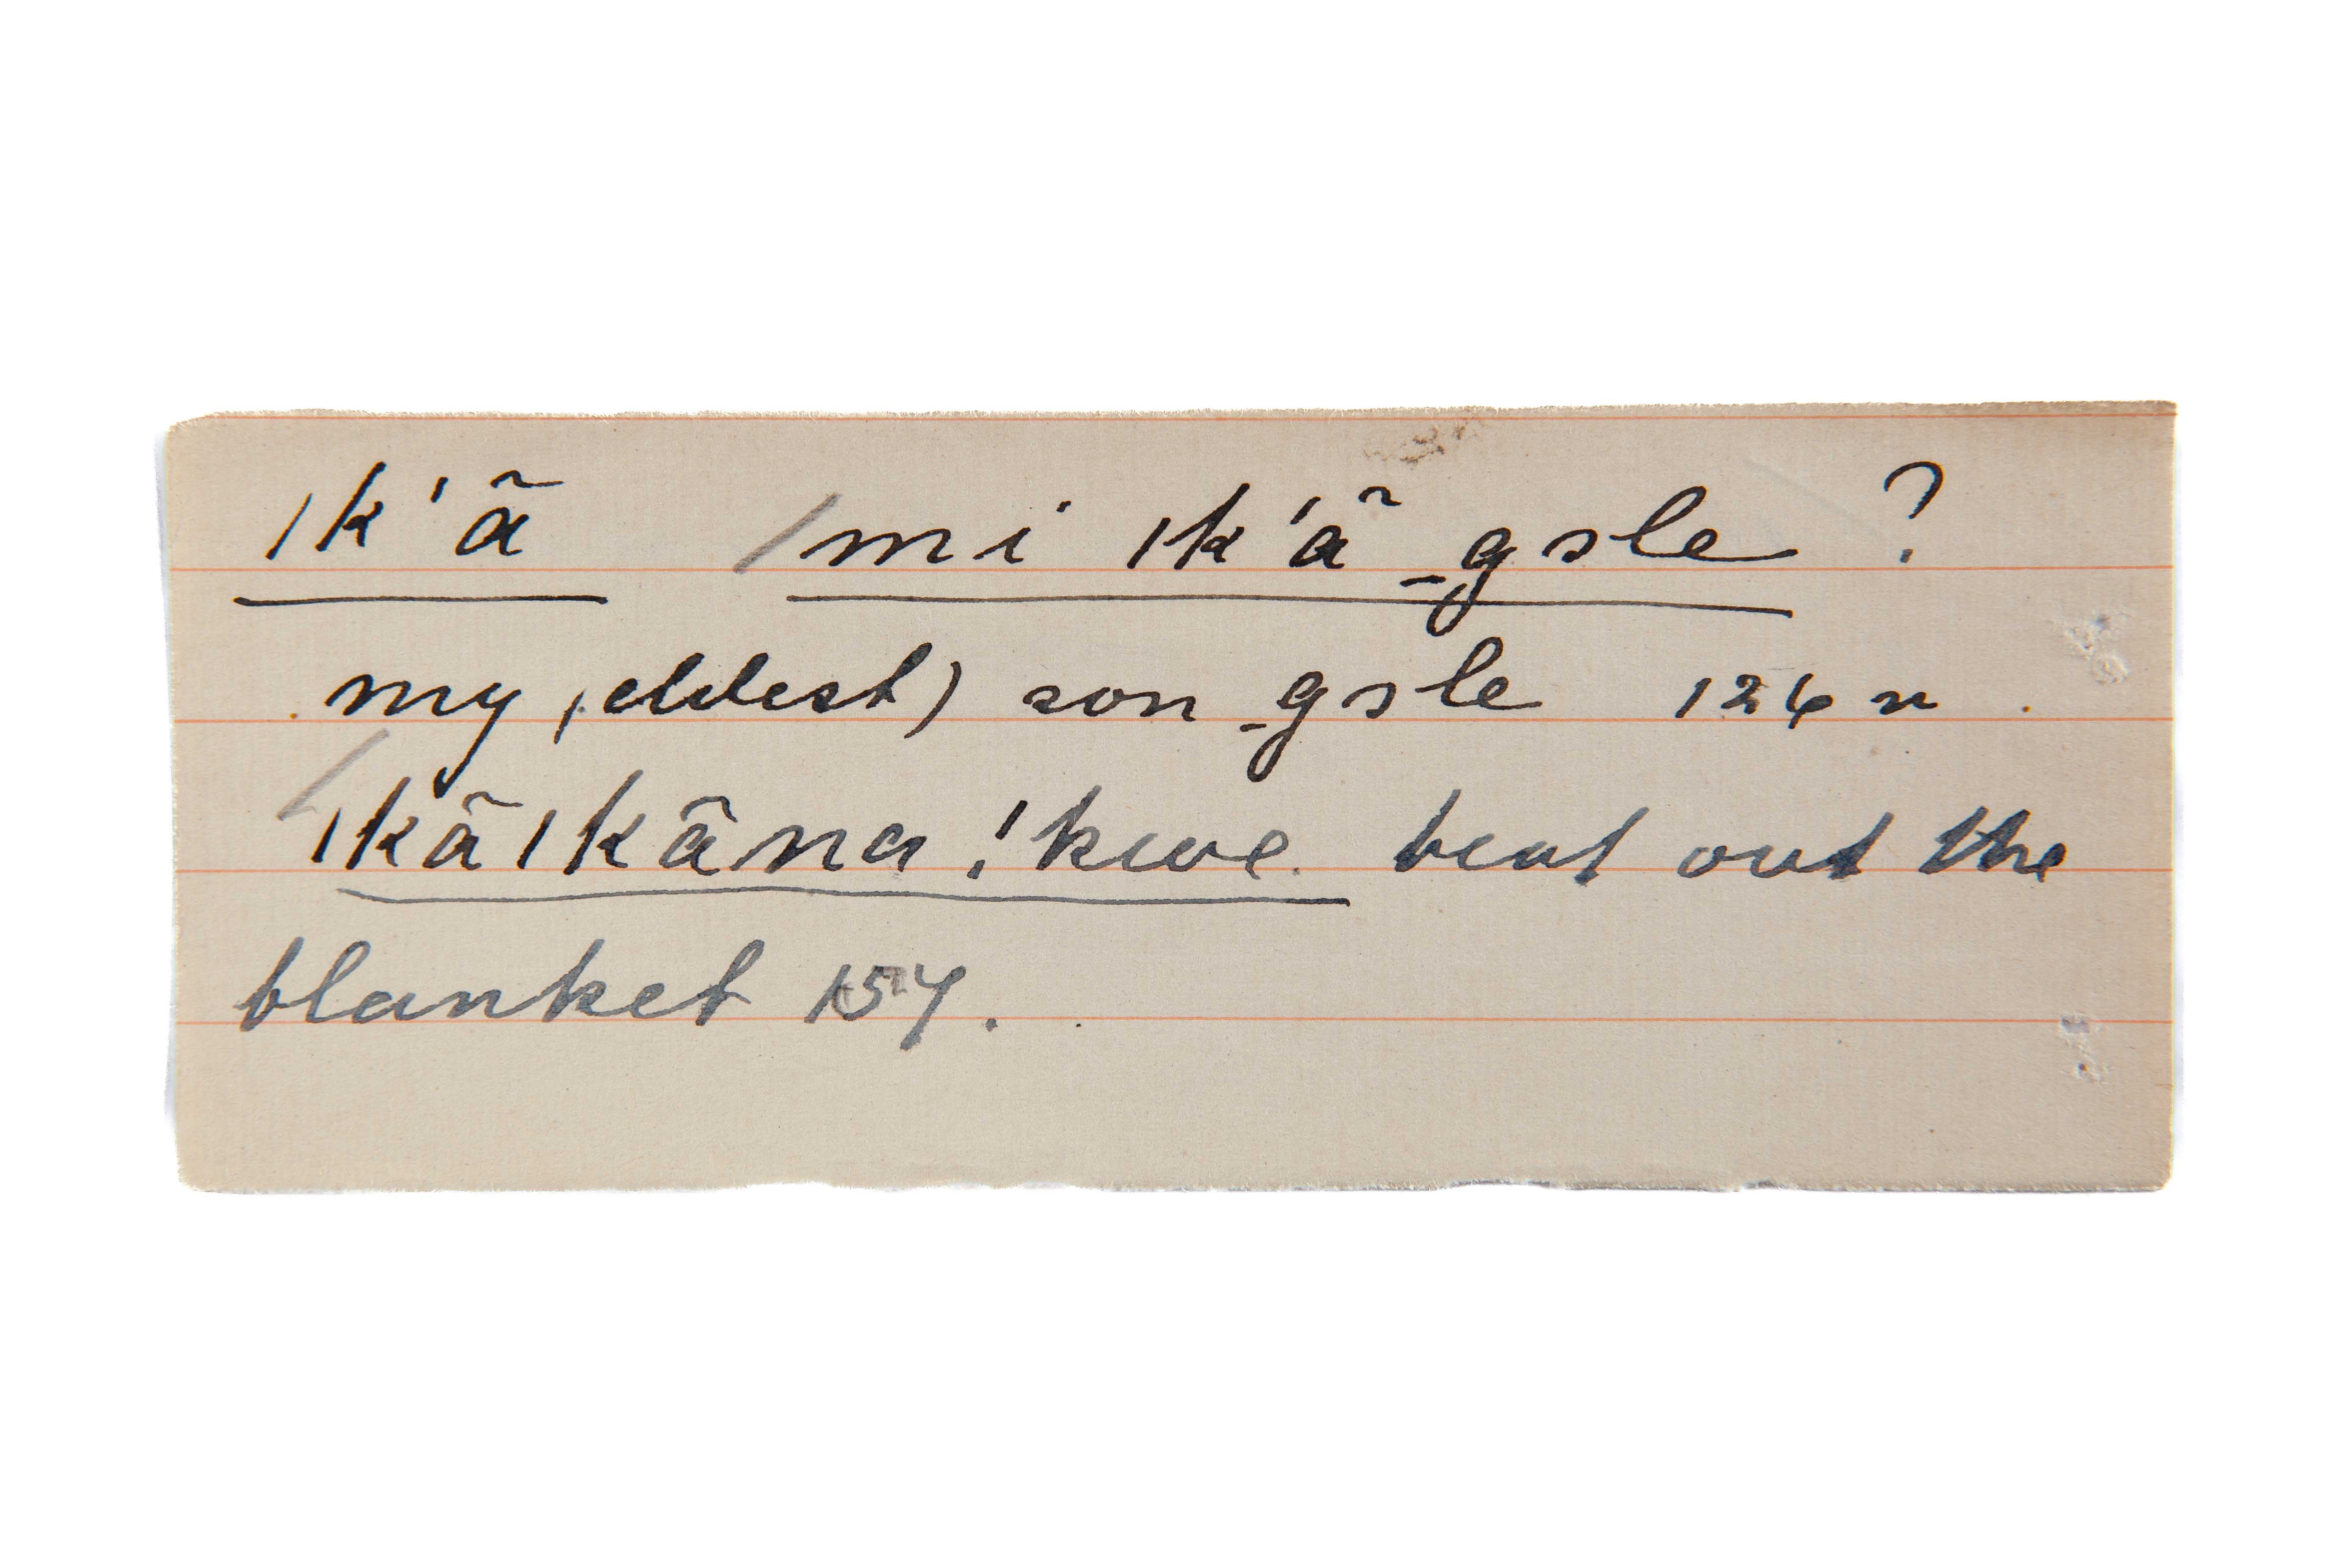 ǀk'ã mi ǀk'ã gsle ?
my (eldest) son gsle 126 n .
ǀkãǀkãna !kwe beat out the
blanket 157.